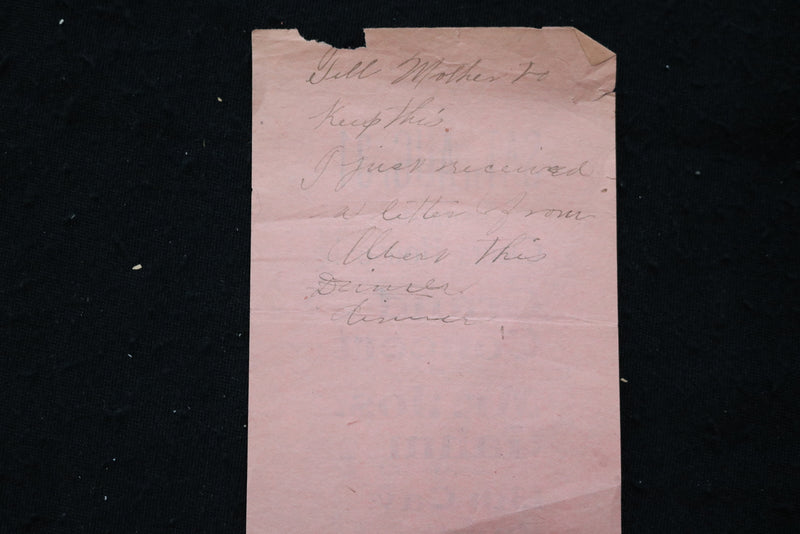 Tell Mother to
keep this
I just received
a letter from
Albert this
Dinner
dinner